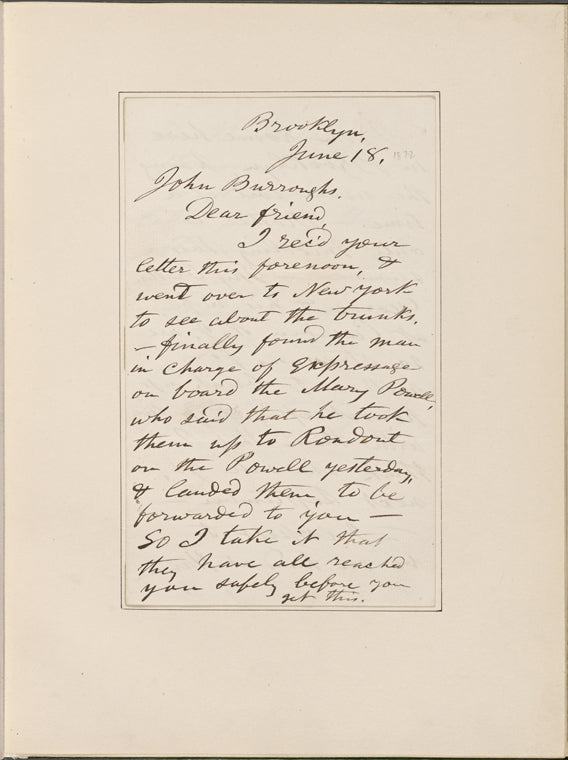 Brooklyn,
June 18, 1872
John Burroughs.
Dear friend,
I rec'd your
letter this forenoon, &
went over to New York
to see about the trunks,
—finally found the man
in charge of Expressage
on board the Mary Powell,
who said that he took
them up to Rondout
on the Powell yesterday,
& landed them, to be
forwarded to you —
So I take it that
they have all reached
you safely before you
get this.